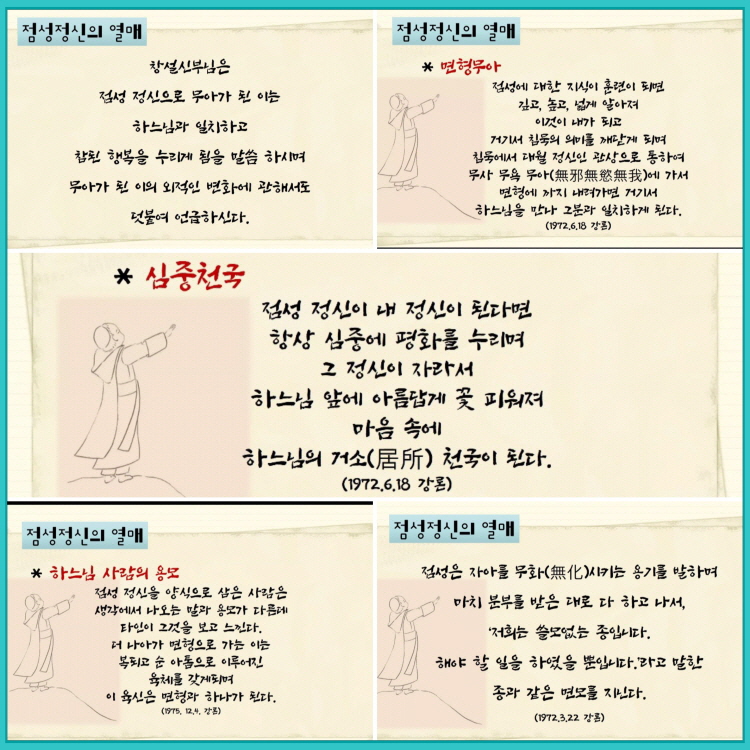 점성정신의 열매
창설신부님은
점성 정신으로 무아가 된 이는
하느님과 일치하고
참된 행복을 누리게 됨을 말씀 하시며
무아가 된 이의 외적인 변화에 관해서도
덧붙여 언급하신다.
점성정신의 열매
* 면형무아
점성에 대한 지식이 훈련이 되면
깊고, 높고, 넓게 알아져
이것이 내가 되고
거기서 침묵의 의미를 깨닫게 되며
침묵에서 대월 정신인 관상으로 통하여
무사 무욕 무아(無邪無慾無我)에 가서
면형에 까지 내려가면 거기서
하느님을 만나 그분과 일치하게 된다.
(1972.6.18 강론)
* 심중천국
점성 정신이 내 정신이 된다면
항상 심중에 평화를 누리며
그 정신이 자라서
하느님 앞에 아름답게 꽃 피워져
마음 속에
하느님의 거소(居所) 천국이 된다.
(1972.6.18 강론)
점성정신의 열매
* 하느님 사람의 용모
점성 정신을 양식으로 삼은 사람은
생각에서 나오는 말과 용모가 다른데
타인이 그것을 보고 느낀다.
더 나아가 면형으로 가는 이는
복되고 순 아톰으로 이루어진
육체를 갖게되며
이 육신은 면형과 하나가 된다.
(1975. 12.4. 강론)
점성정신의 열매
점성은 자아를 무화(無化)시키는 용기를 발하며
마치 분부를 받은 대로 다 하고 나서,
'저희는 쓸모없는 종입니다.
해야 할 일을 하였을 뿐입니다.'라고 말한
종과 같은 면모를 지닌다.
(1972.3.22 강론)